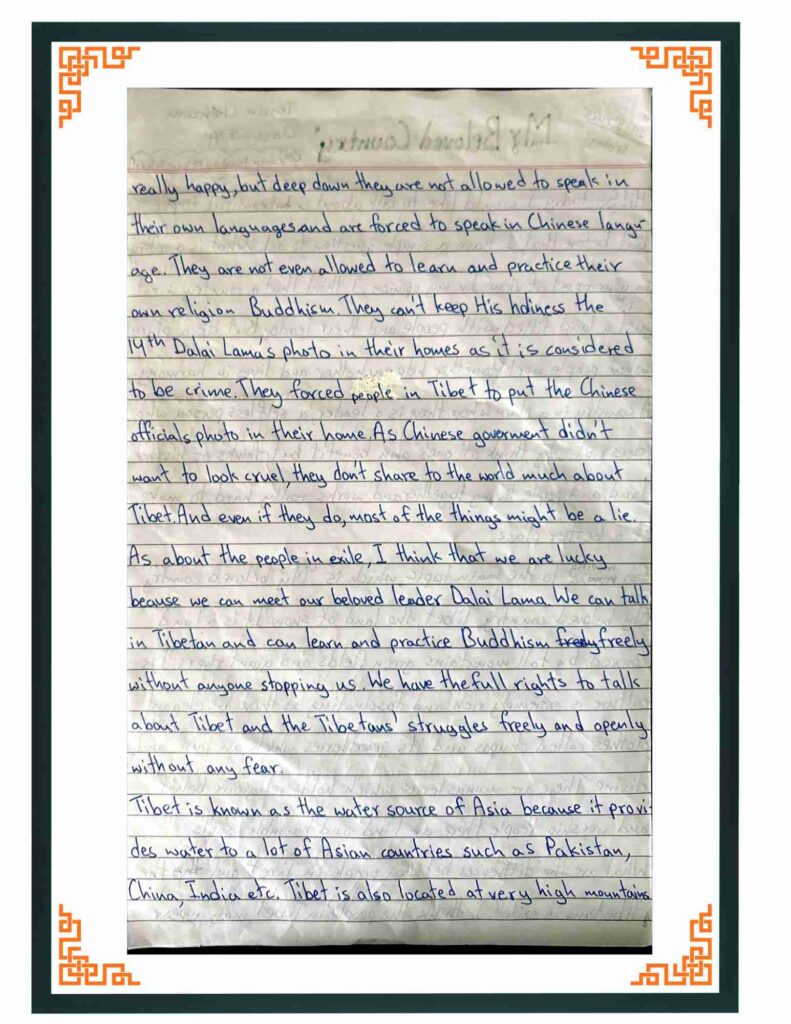 My Beloved Country
really happy, but deep down they are not allowed to speak in
their own languages and are forced to speak in Chinese langu-
age. They are not even allowed to learn and practice their
own religion Buddhism. They can't keep His holiness the
14th Dalai Lama's photo in their homes as it is considered
to be crime. They forced people in Tibet to put the Chinese
officials photo in their home. As Chinese goverment didn't
want to look cruel, they don't share to the world much about
Tibet. And even if they do, most of the things might be a lie.
As about the people in exile, I think that we are lucky
beause we can meet our beloved leader Dalai Lama. We can talk
in Tibetan and can learn and practice Buddhism freely
without anyone stopping us. We have the full rights to talk
about Tibet and the Tibetans' struggles freely and openly
without any fear.
Tibet is known as the water source of Asia because it provi-
des water to a lot of Asian countries such as Pakistan,
China, India etc. Tibet is also located at very high mountains